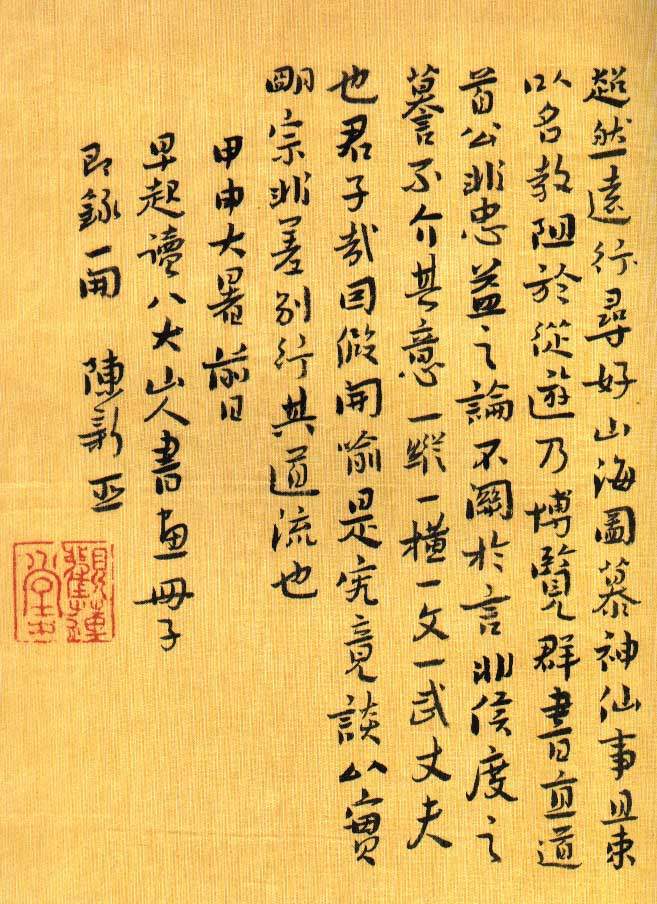 超然一遠行尋好山海圖慕神仙事且束
以名教阻於從遊乃博覽群書曰直道
首公非忠益之論不關於言非侯度之
謩不介其意一縱一橫一文一武丈夫
也君子哉因假開喻是究竟談以實
明宗非差別行其道流也
甲申大暑前日
早起讀八大山人書畫冊子
即錄一開 陳新亞
觀蓮
堂